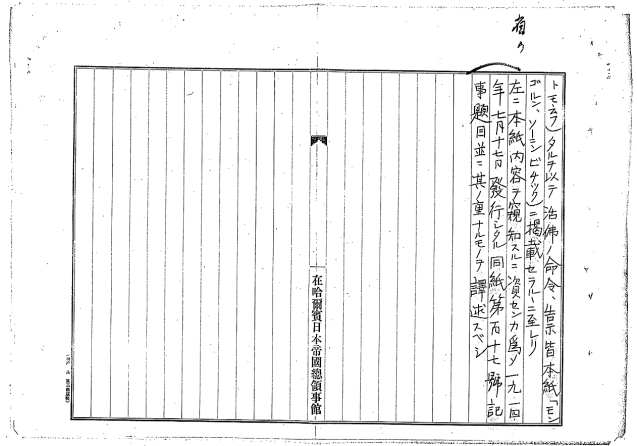 省ク
トモネフ)タルヲ以テ活佛ノ命令、告示皆本紙「モン
ゴルン、ソーニンビチック」ニ掲載セラルヽニ至レリ
左ニ本紙内容ヲ窺知スルニ資センカ爲メ一九一四
年七月十七日發行シタル同紙第百十七號記
事題目並ニ其ノ重ナルモノヲ譯述スベシ
在哈爾賓日本帝國總領事館